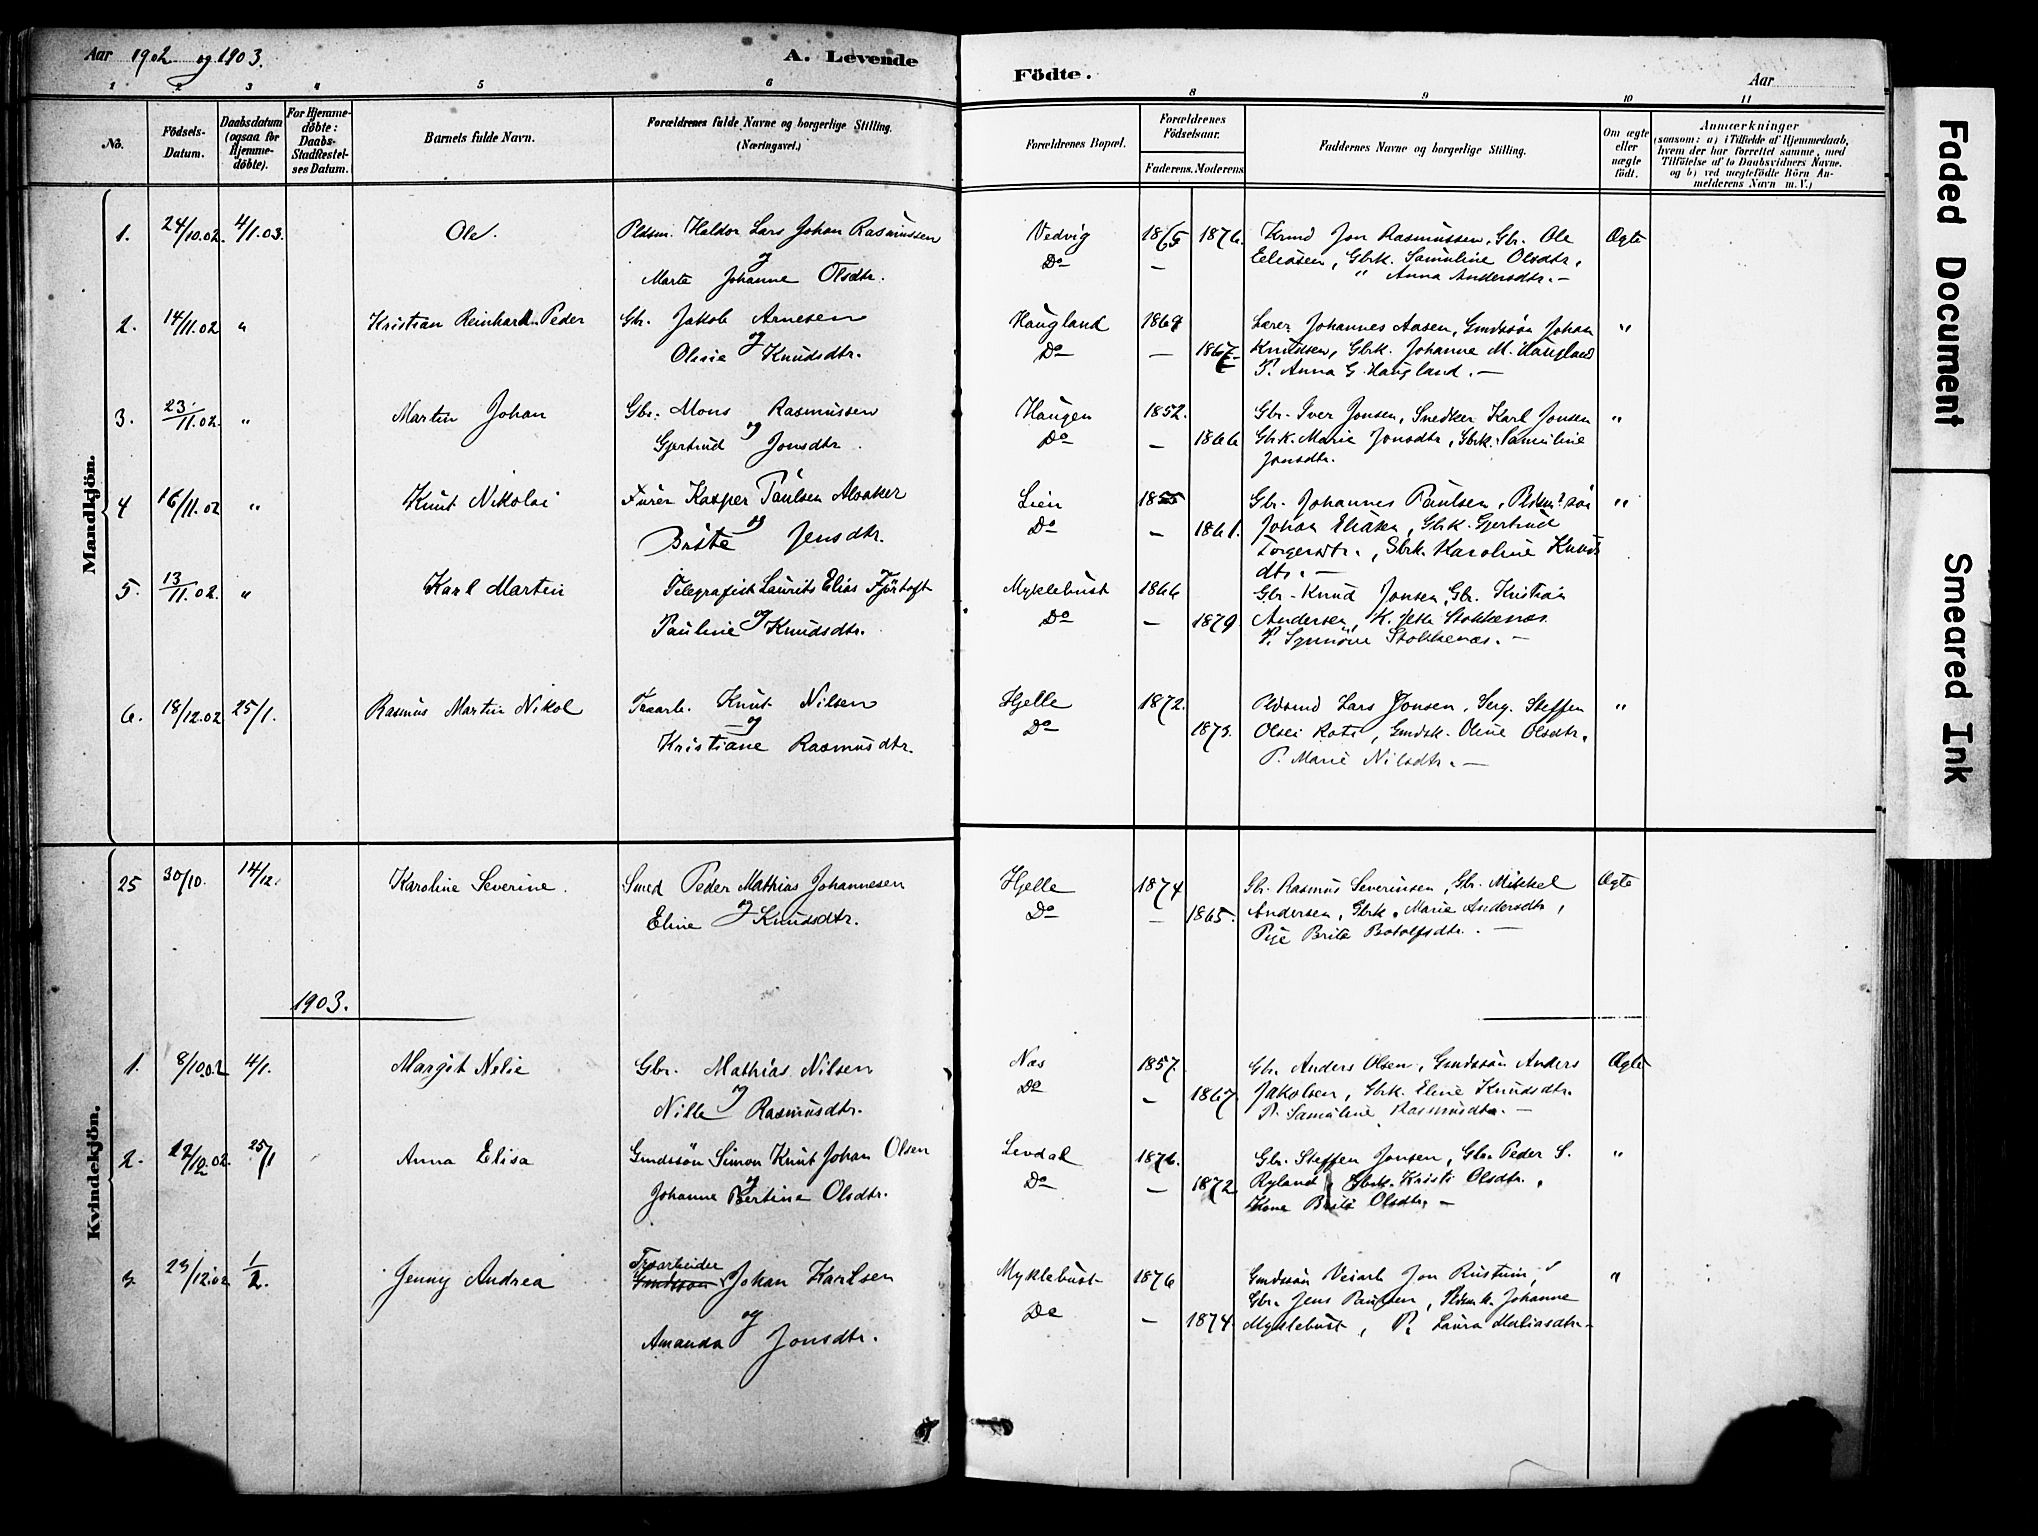 Aar 1902 og 1903.
A. Levende
Födte.
Aar
1 2 3 4 5 6 8 9 10 11
No.
Födsels-
Datum.
Daabsdatum
(ogsaa for
Hjemme-
döbte).
For Hjemme-
döbte:
Daabs-
Stadfæstel-
ses Datum.
Barnets fulde Navn.
Forældrenes fulde Navne og borgerlige Stilling.
(Næringsvei.)
Forældrenes Bopæl.
Forældrenes
Födselsaar.
Faderens. Moderens.
Faddernes Navne og borgerlige Stilling.
Om ægte
eller
uægte
födt.
Anmærkninger
(saasom: a) i Tilfælde af Hjemmedaab,
hvem der har forrettet samme, med
Tilföielse af to Daabsvidners Navne.
og b) ved uægtefödte Börn An-
melderens Navn m. V.)
Mandkjön.
1. 24/10.02. 4/1.03. Ole. Pldsm. Haldor Lars Johan Rasmussen
og
Marta Johanne Olsdtr.
Vedvig 1865 1876. Kmd Jon Rasmussen, Gbr. Ole Ægte
Do — Eliasen, Gbrk. Samuline Olsdtr,
" Anna Andersdtr. —
2. 14/11.02 " Kristian Reinhard Peder Gbr. Jakob Arnesen
og
Olivie Knudsdtr.
Haugland 1869 Lærer Johannes Aasen, Gmdssön Johan "
Do — 1867 Knudsen, Gbrk. Johanne M. Haugland
P. Anna G. Haugland. —
3. 23/11.02. " Martin Johan Gbr. Mons Rasmussen
og
Gjertrud Jonsdtr.
Haugen 1852. Gbr. Iver Jonsen, Snedker Karl Jonsen "
Do — 1866 Gbrk. Marie Jonsdtr, Gbrk. Samuline
Jonsdtr.
4 16/11.02 " Knut Nikolai Kasper Paulsen Alvaker
og
Brite Jensdtr.
Lien 1855 Gbr. Johannes Paulsen, "
Do — 1861. Johan Eliasen, Gbrk. Gjertrud
Torgersdtr., Gbrk. Karoline Knuds
dtr. —
5. 13/11.02. " Karl Martin Telegrafist Laurits Elias Fjörtoft
og
Pauline Knudsdtr.
Myklebust 1866 Gbr. Knud Jonsen, Gbr. Kristian
Do — 1879 Andersen, K. Stokkenæs
P. Synnöve Stokkenæs. —
6. 18/12.02 25/1. Rasmus Martin Nikol Træarb. Knut Nilsen
og
Kristiane Rasmusdtr.
Hjelle 1872. Pldsmd Lars Jonsen, Serg. Steffen "
Do 1873. Olsen Rote, Gmdsk. Oline Olsdtr.
P. Marie Nilsdtr. —
Kvindekjön.
25 30/10. 14/12. Karoline Severine. Smed Peder Mathias Johannesen
og
Eline Knudsdtr.
Hjelle 1874 Gbr. Rasmus Severinsen, Gbr. Mikkel Ægte
Do — 1865. Andersen, Gbrk. Marie Andersdtr,
Pige Brite Botolfsdtr. —
1903.
1. 8/10.02 4/1. Margit Nelie Gbr. Mathias Nilsen
og
Nille Rasmusdtr.
Næs 1857. Gbr. Anders Olsen, Gmdssön Anders Ægte
Do — 1867. Jakobsen, Gbrk. Eline Knudsdtr.
P. Samuline Rasmusdtr. —
2. 12/12.02. 25/1 Anna Elisa Gmdssön Simon Knut Johan Olsen
og
Johanne Bertine Olsdtr.
Levdal 1876. Gbr. Steffen Jonsen, Gbr. Peder S. "
Do — 1872 Ryland, Gbrk. Kristi Olsdtr.
Kone Brite Olsdtr. —
3. 23/12.02 1/2. Jenny Andrea Træarbeider
Gmdssön Johan Karlsen
og
Amanda Jonsdtr.
Myklebust 1876 Gmdssön Veiarb Jon Rustum, "
Do — 1874. Gbr. Jens Paulsen, Pldsm.k. Johanne
Myklebust, P. Laura
Faded Document
Smeared Ink